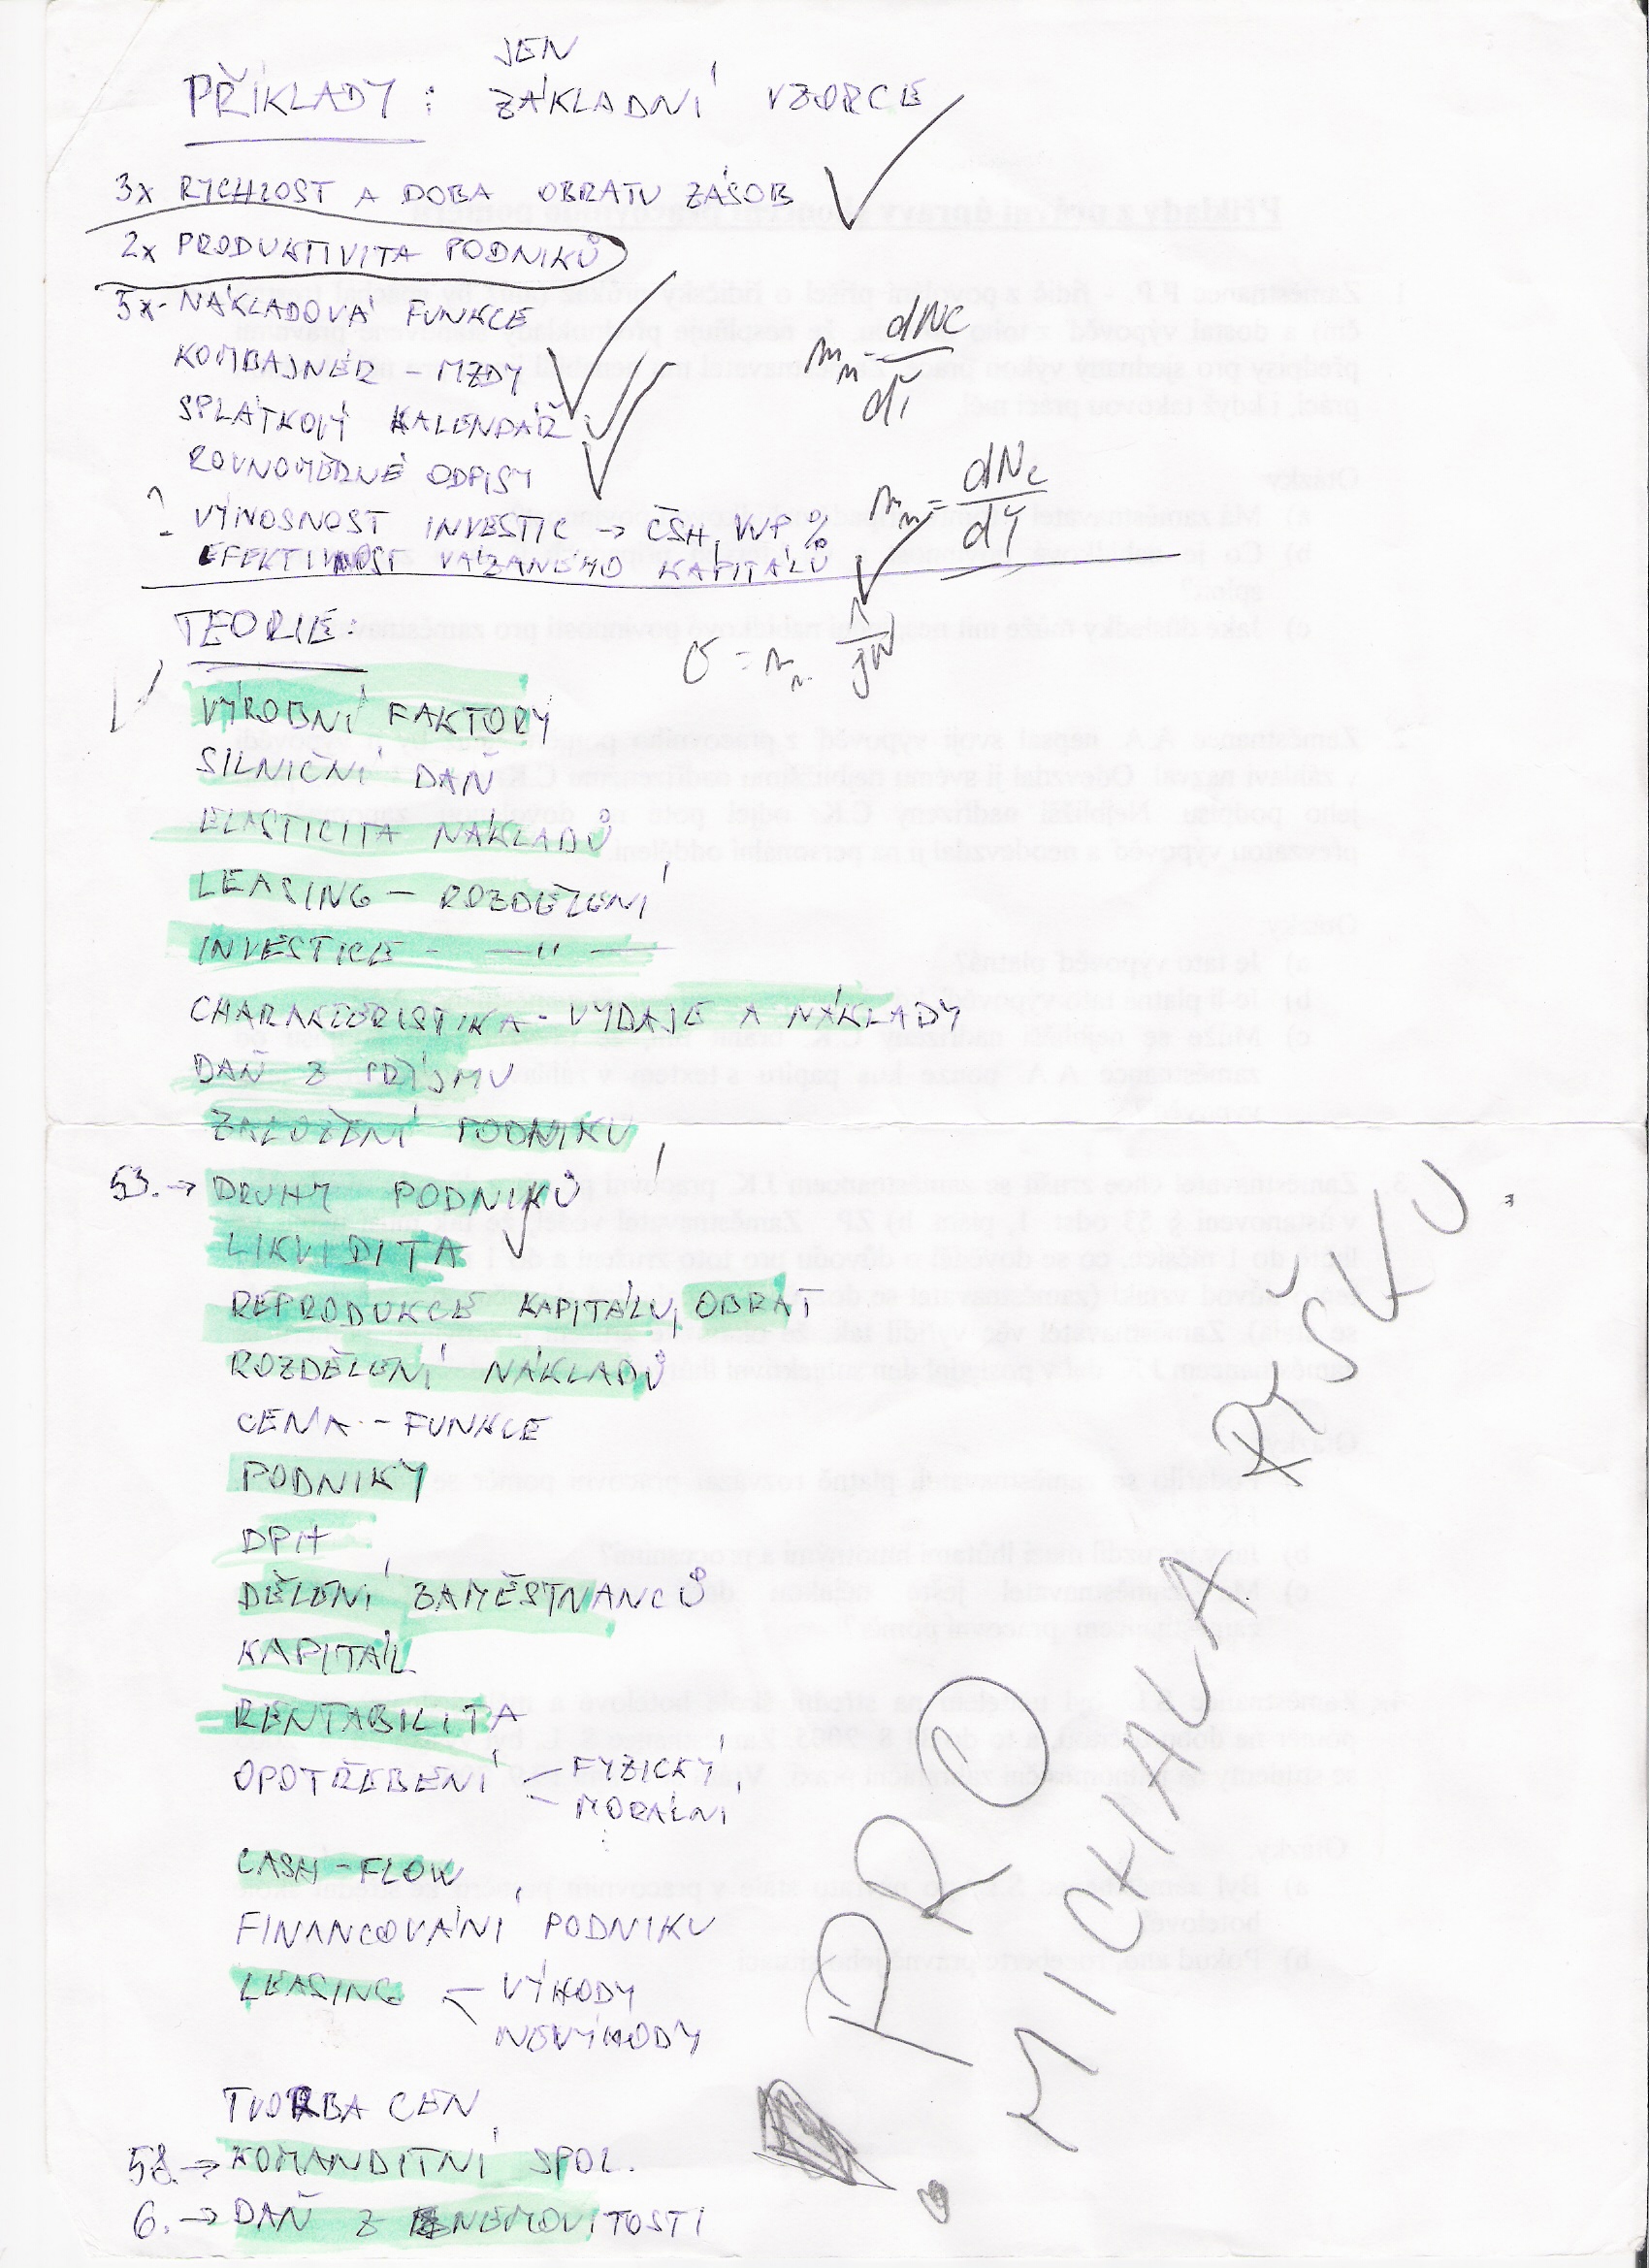 JEN
PŘÍKLADY: ZÁKLADNÍ VZORCE
3x RYCHLOST A DOBA OBRATU ZÁSOB
2x PRODUKTIVITA PODNIKŮ
3x - NÁKLADOVÁ FUNKCE
KOMBAJNÉR - MZDY
SPLÁTKOVÝ KALENDÁŘ
ROVNOMĚRNÉ ODPISY
? VÝNOSNOST INVESTIC → ČSH, VVP %
EFEKTIVNOST VÁZANÉHO KAPITÁLU
TEORIE:
VÝROBNÍ FAKTORY
SILNIČNÍ DAŇ
ELASTICITA NÁKLADŮ
LEASING - ROZDĚLENÍ
INVESTICE - — " —
CHARAKTERISTIKA - VÝDAJE A NÁKLADY
DAŇ Z PŘÍJMU
ZALOŽENÍ PODNIKU
53. → DRUHY PODNIKŮ
LIKVIDITA
REPRODUKCE KAPITÁLU, OBRAT
ROZDĚLENÍ NÁKLADŮ
CENA - FUNKCE
PODNIKY
DPH
DĚLENÍ ZAMĚSTNANCŮ
KAPITÁL
RENTABILITA
OPOTŘEBENÍ - FYZICKÝ
- MORÁLNÍ
CASH-FLOW
FINANCOVÁNÍ PODNIKU
LEASING - VÝHODY
NEVÝHODY
TVORBA CEN
58. → KOMANDITNÍ SPOL.
6. → DAŇ Z NEMOVITOSTI
PRO
MICHALA